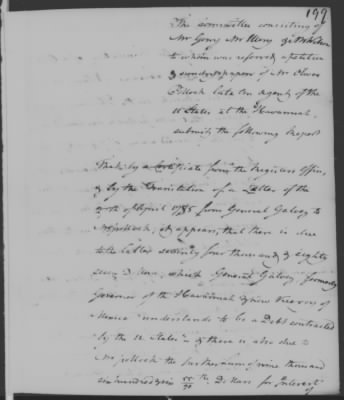 199
The committee consisting of
Mr Gerry Mr Henry & Mr
to whom was referred a petition
& sundry papers of Mr Oliver
Pollock late an agent of the
U States at the Havannah,
submit the following Report
That by a Certificate from the Registers Office,
& by the Translation of a Letter of the
of April 1785 from General Galvez to
Mr Pollock, it appears, that there is due
to the latter seventy four thousand & eighty
seven Dollars, which General Galvez formerly
Governor of the Havannah & now Viceroy of
Mexico "understands to be a Debt contracted
by the U States" & there is also due to
Mr Pollock the further sum of nine thousand
six hundred & six /90th Dollars for Interest